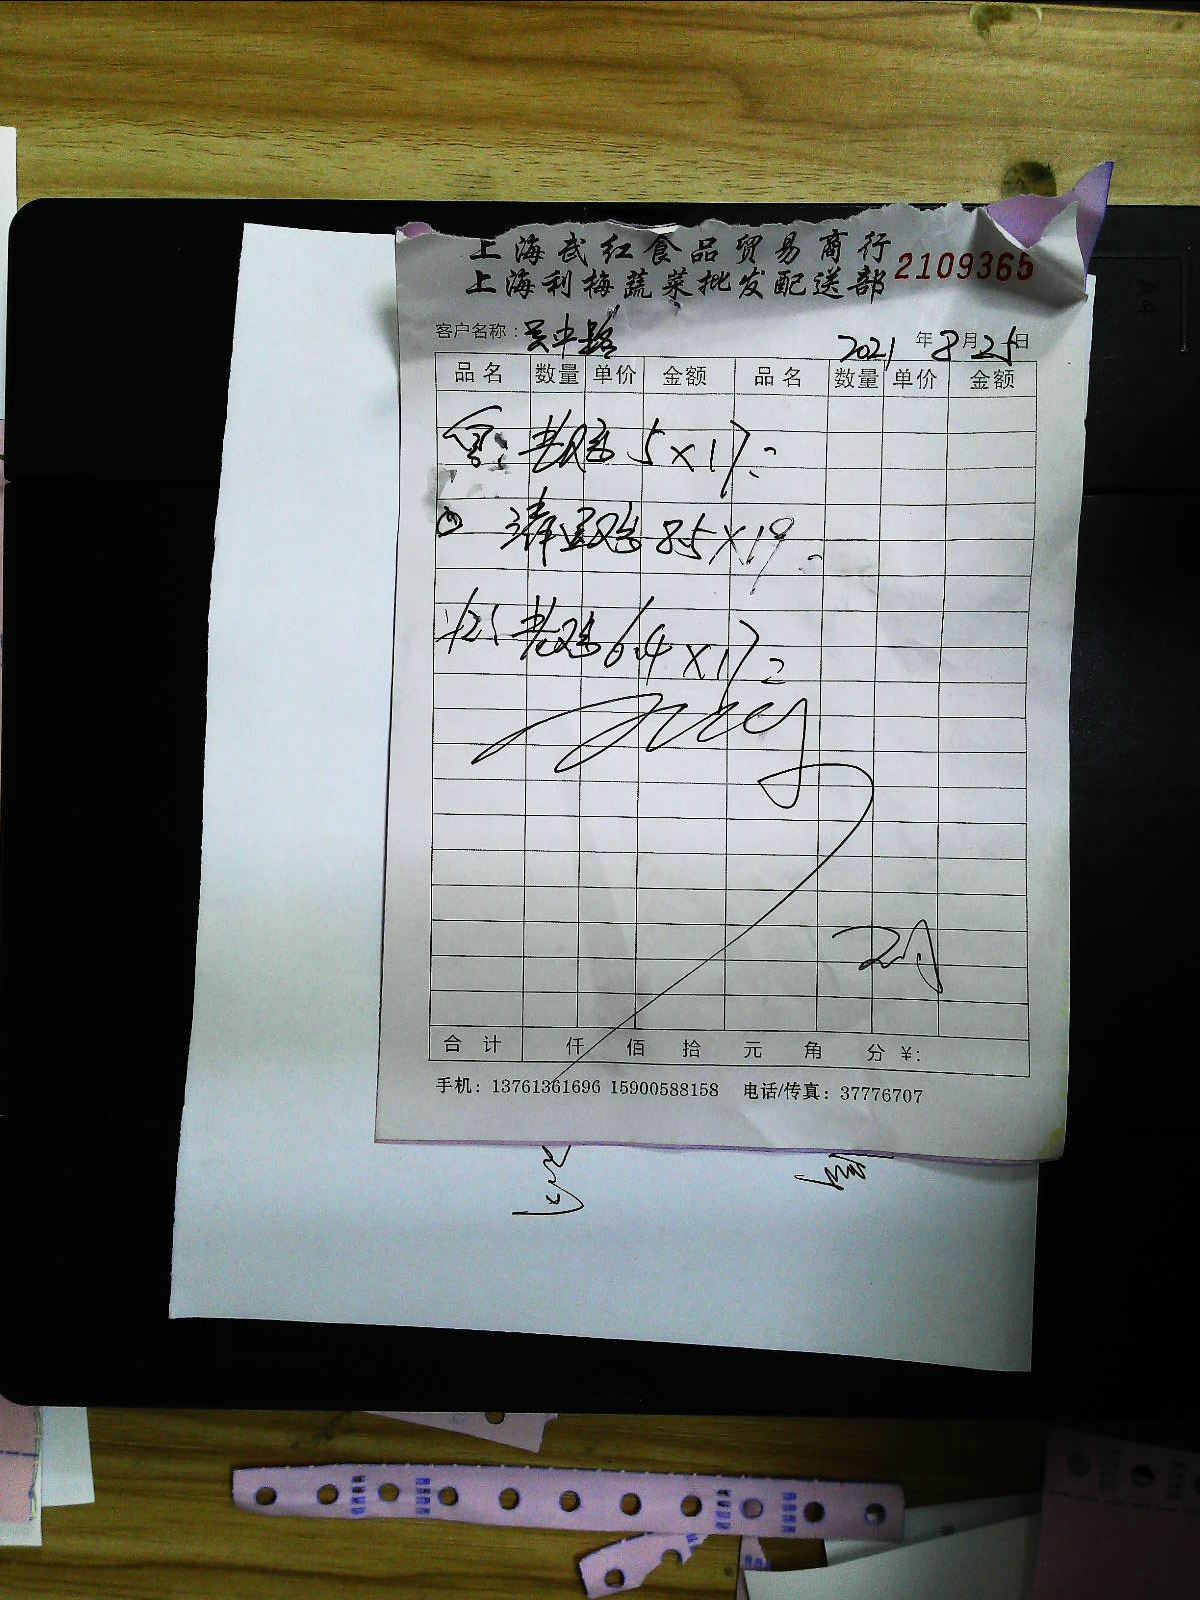 上海武红食品贸易商行
上海利梅蔬菜批发配送部 2109365
客户名称：吴中路 2021年8月25日
品名 数量 单价 金额 品名 数量 单价 金额
老鸡 5×17=
清远鸡 8.5×19=
老鸡 6.4×17=
合计 仟 佰 拾 元 角 分 ¥:
手机：13761361696 15900588158 电话/传真：37776707